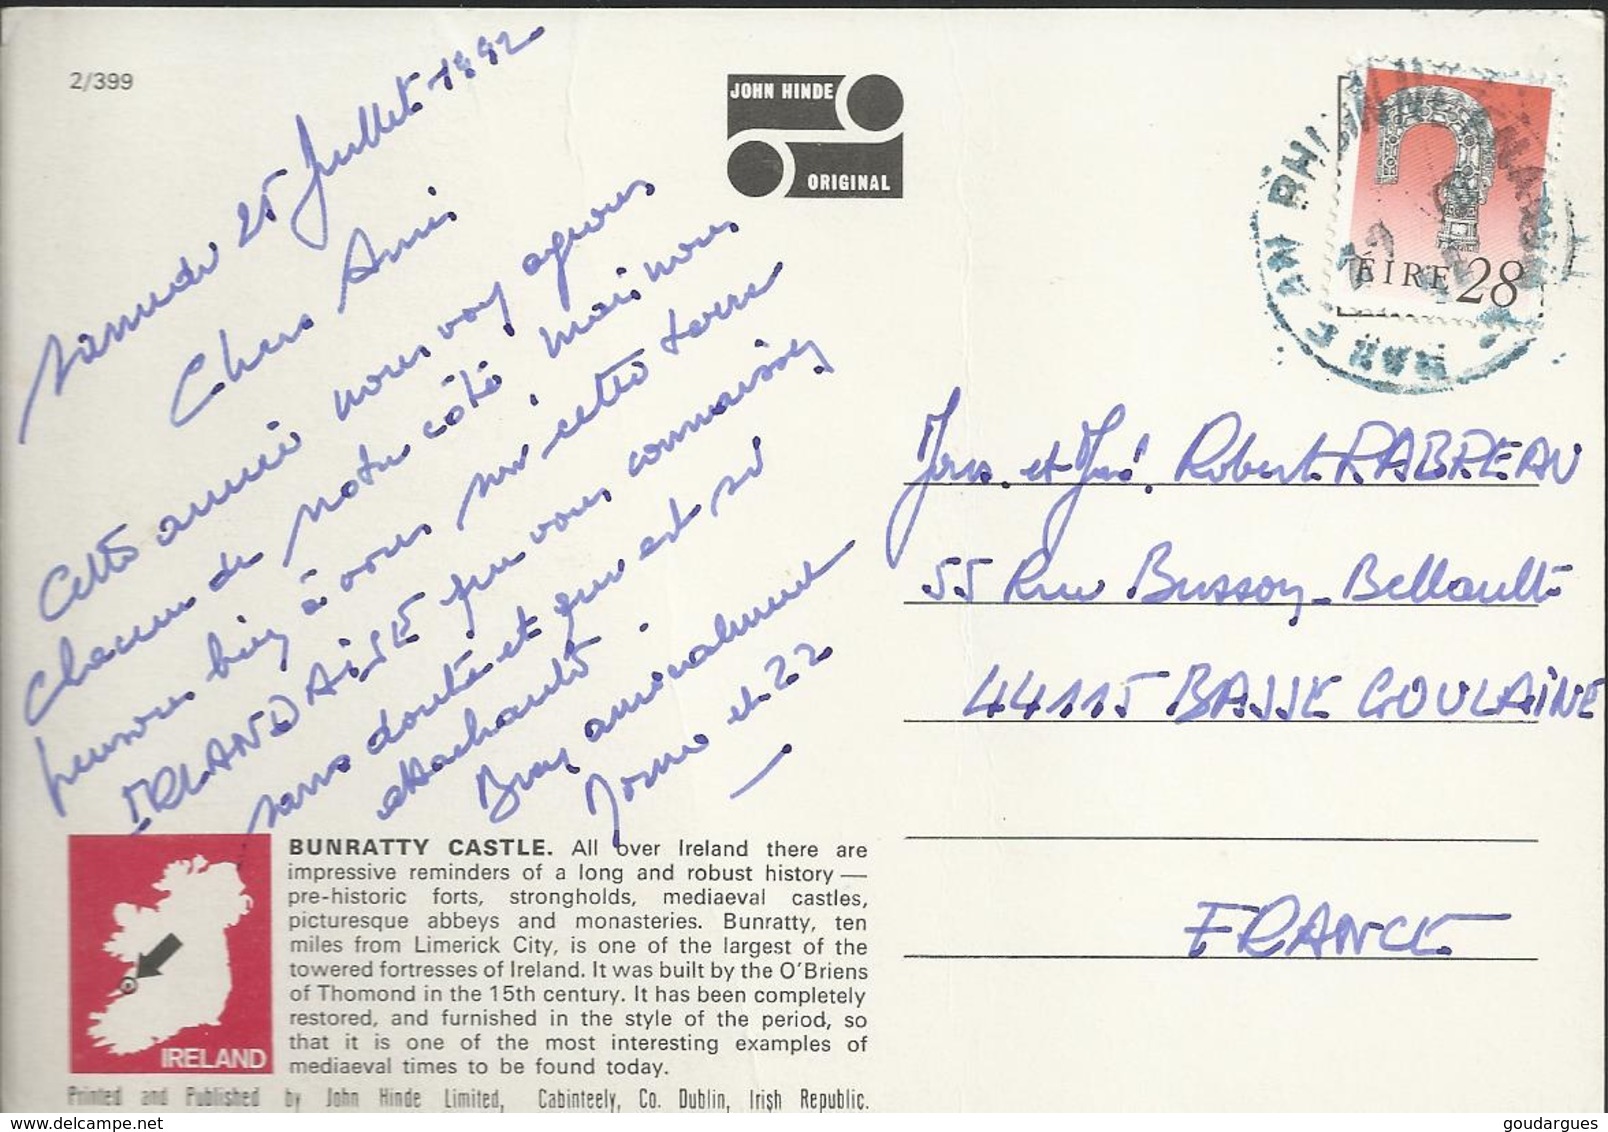 2/399
JOHN HINDE
ORIGINAL
Samedi 25 Juillet 1992
Chers Amis
Cette année nous voyageons
chacun de notre côté mais nous
pensons bien à vous sur cette terre
IRLANDAISE que vous connaissez
sans doute et qui est si
attachante.
Bien amicalement
ÉIRE 28
et José. Robert RABREAU
55 Rue Busson-Bellault
44115 BASSE GOULAINE
FRANCE
BUNRATTY CASTLE. All over Ireland there are
impressive reminders of a long and robust history —
pre-historic forts, strongholds, mediaeval castles,
picturesque abbeys and monasteries. Bunratty, ten
miles from Limerick City, is one of the largest of the
towered fortresses of Ireland. It was built by the O'Briens
of Thomond in the 15th century. It has been completely
restored, and furnished in the style of the period, so
that it is one of the most interesting examples of
mediaeval times to be found today.
IRELAND
Printed and Published by John Hinde Limited, Cabinteely, Co. Dublin, Irish Republic.
delcampe.net
goudargues